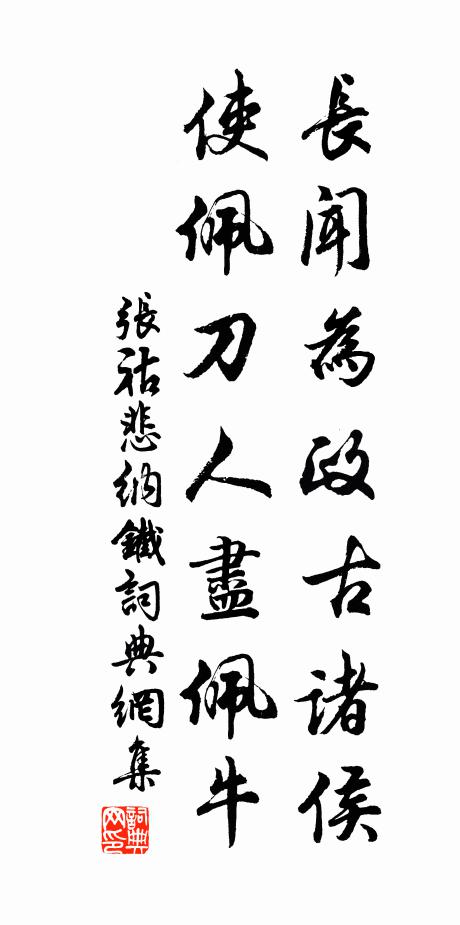 長聞為政古諸侯
使佩刀人盡佩牛
張祜悲納鐵詞典網集
詞典网印